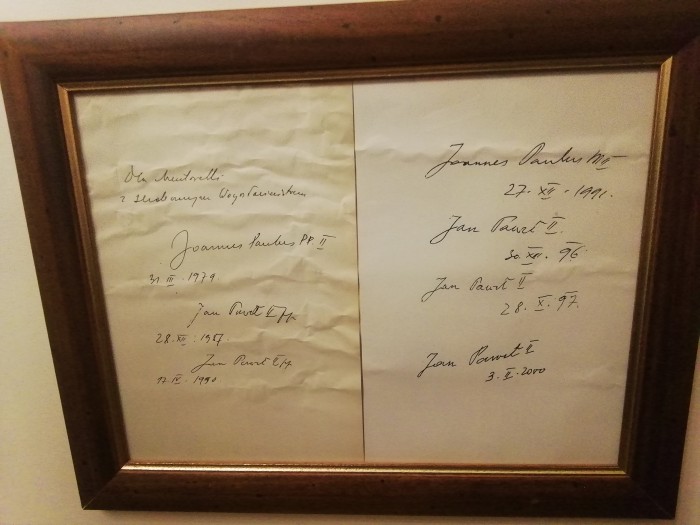 Dla Mentorelli
z
Joannes Paulus PP II
31. III. 1979.
Jan Paweł II pp
28. XII. 1987
Jan Paweł II pp
12. IV. 1990
Joannes Paulus PP II
27. XII. 1991.
Jan Paweł II.
30. XII. 96.
Jan Paweł II
28. X. 97.
Jan Paweł II
3. II. 2000